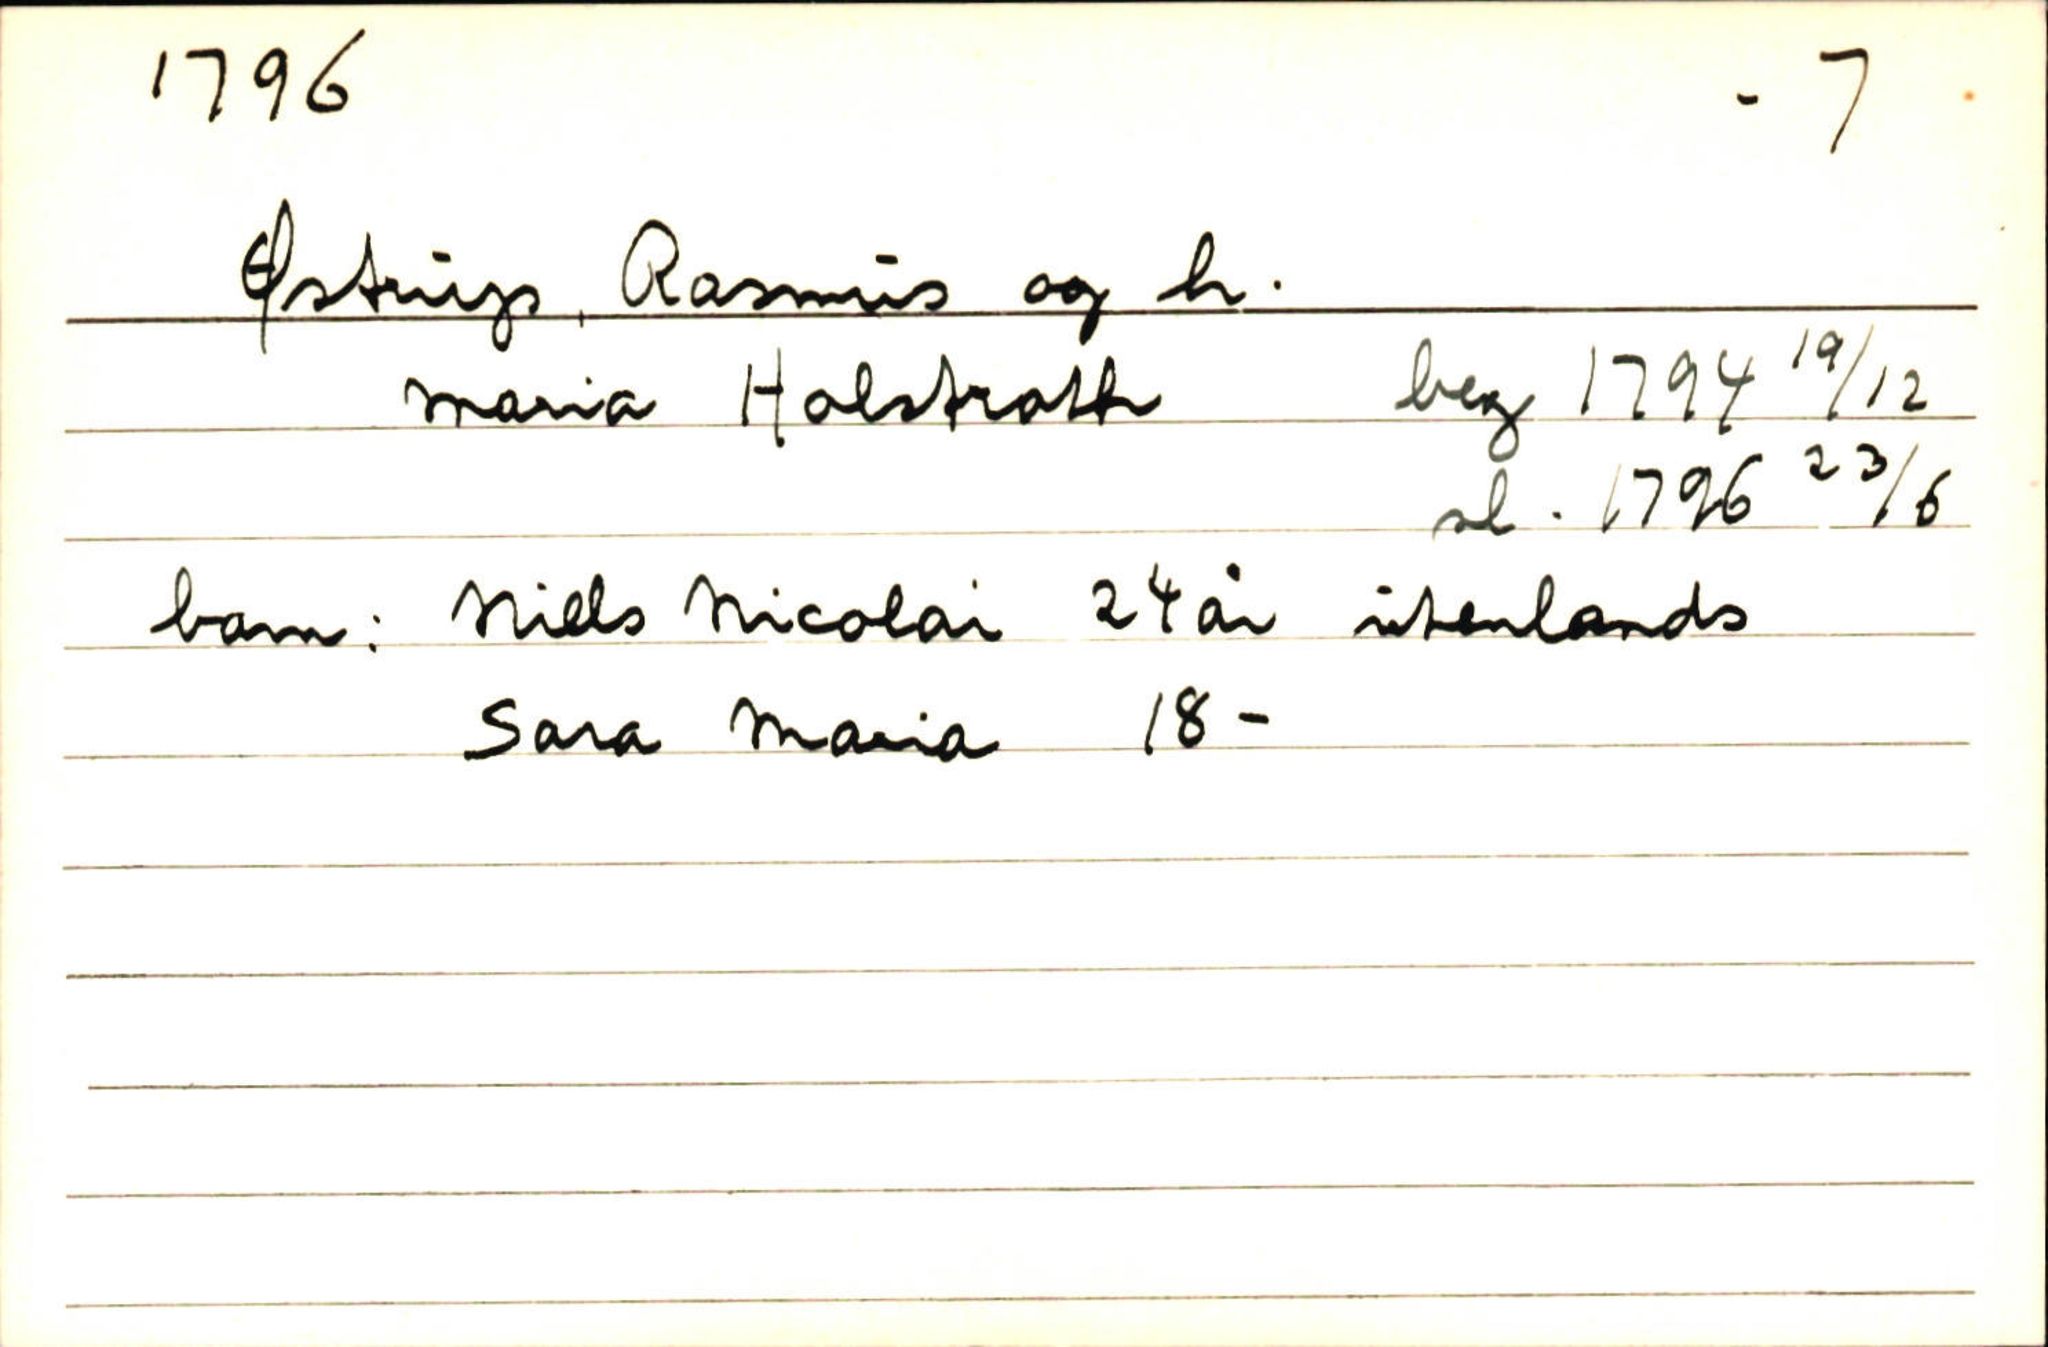 1796 - 7
Østrups, Rasmus og h.
Maria Holstrath beg 1794 19/12
sl. 1796 23/6
barn: Niels Nicolai 24 år utenlands
Sara Maria 18 -